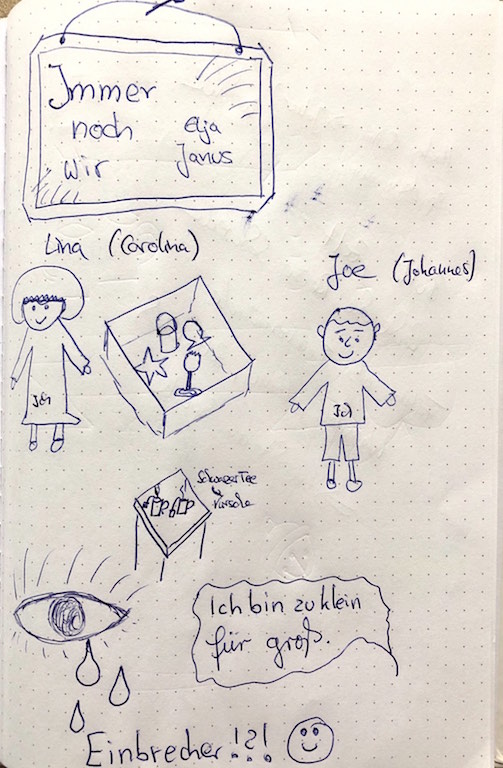 Immer
noch
wir
elja
Janus
Lina (Carolina)
Joe (Johannes)
Ich
Ich
Schwarzer Tee
Ich bin zu klein
für groß.
Einbrecher!?!